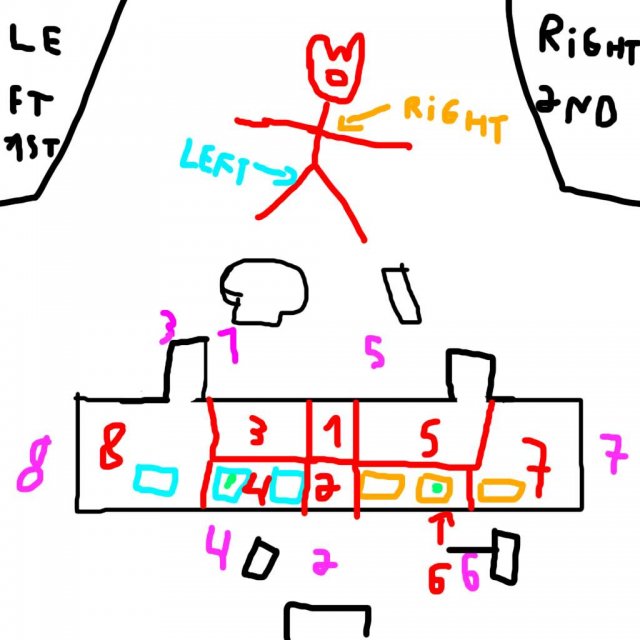 LE
FT
1ST
RiGHT
2ND
RiGHT
LEFT
3
1
5
8
8
3
1
5
7
7
4
2
4
2
6
6